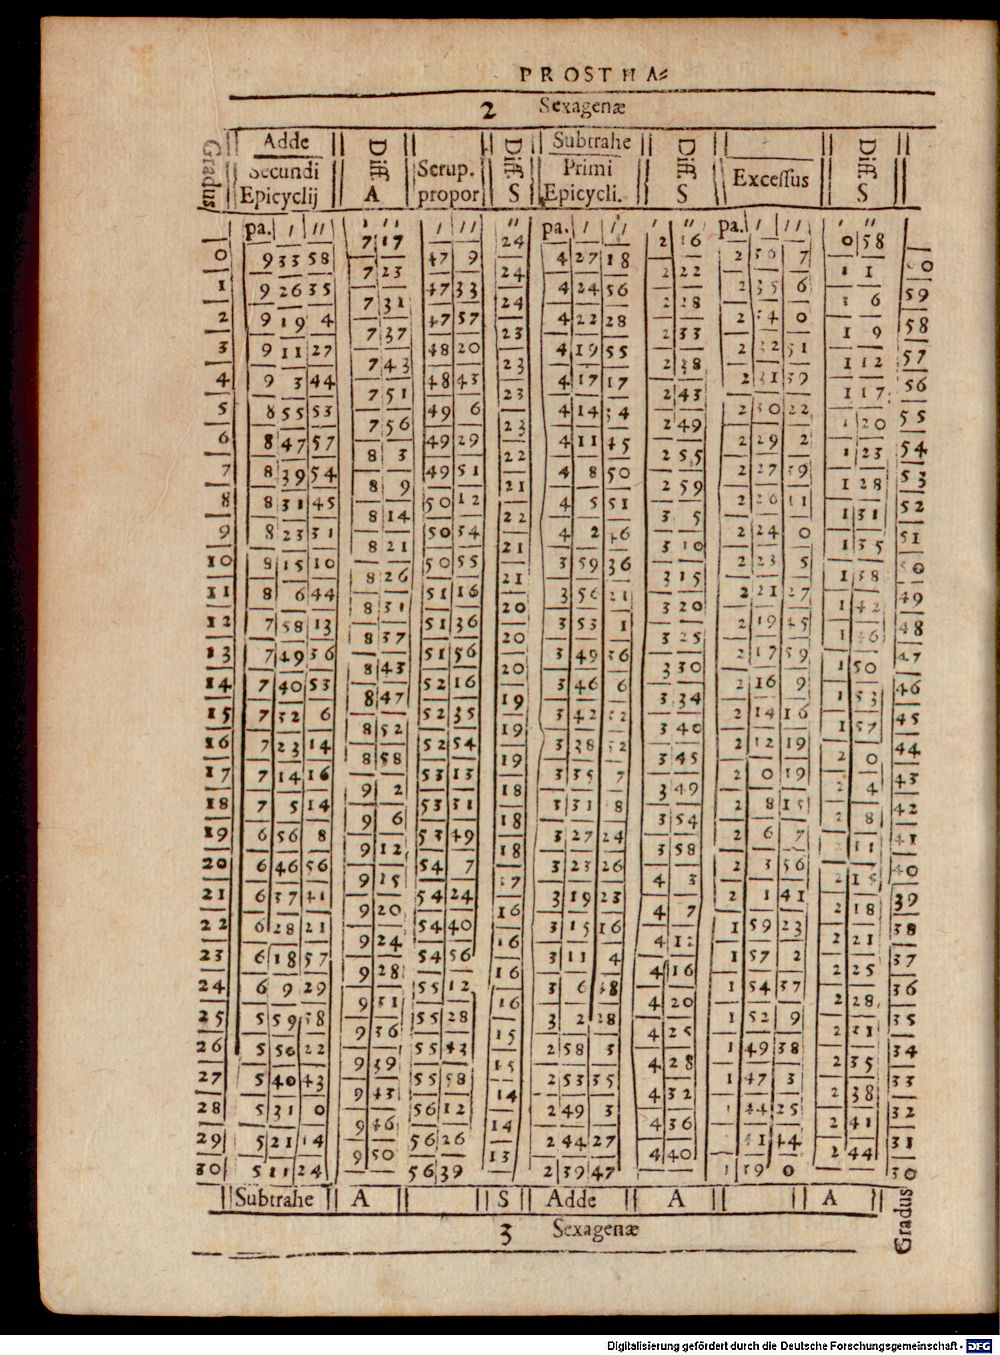 PROSTHA⸗
2 Sexagenæ
Gradus Adde Secundi Epicyclij Diff. A Scrup. propor Diff. S Subtrahe Primi Epicycli. Diff. S Excessus Diff. S
pa. ′ ″ ′ ″ ′ ″ ″ pa. ′ ″ ′ ″ pa. ′ ″ ′ ″
7 17 24 2 16 0 58
0 9 33 58 47 9 4 27 18 2 36 7 60
7 23 24 2 22 1 1
1 9 26 35 47 33 4 24 56 2 35 6 59
7 31 24 2 28 1 6
2 9 19 4 47 57 4 22 28 2 34 0 58
7 37 23 2 33 1 9
3 9 11 27 48 20 4 19 55 2 32 51 57
7 43 23 2 38 1 12
4 9 3 44 48 43 4 17 17 2 31 39 56
7 51 23 2 43 1 17
5 8 55 53 49 6 4 14 34 2 30 22 55
7 56 23 2 49 1 20
6 8 47 57 49 29 4 11 45 2 29 2 54
8 3 22 2 55 1 23
7 8 39 54 49 51 4 8 50 2 27 39 53
8 9 21 2 59 1 28
8 8 31 45 50 12 4 5 51 2 26 11 52
8 14 22 3 5 1 31
9 8 23 31 50 34 4 2 46 2 24 0 51
8 21 21 3 10 1 35
10 8 15 10 50 55 3 59 36 2 23 5 50
8 26 21 3 15 1 38
11 8 6 44 51 16 3 56 21 2 21 27 49
8 31 20 3 20 1 42
12 7 58 13 51 36 3 53 1 2 19 45 48
8 37 20 3 25 1 46
13 7 49 36 51 56 3 49 36 2 17 59 47
8 43 20 3 30 1 50
14 7 40 53 52 16 3 46 6 2 16 9 46
8 47 19 3 34 1 53
15 7 32 6 52 35 3 42 32 2 14 16 45
8 52 19 3 40 1 57
16 7 23 14 52 54 3 38 52 2 12 19 44
8 58 19 3 45 2 0
17 7 14 16 53 13 3 35 7 2 0 19 43
9 2 18 3 49 2 4
18 7 5 14 53 31 3 31 8 2 8 15 42
9 6 18 3 54 2 8
19 6 56 8 53 49 3 27 24 2 6 7 41
9 12 18 3 58 2 11
20 6 46 56 54 7 3 23 26 2 3 56 40
9 15 17 4 3 2 15
21 6 37 41 54 24 3 19 23 2 1 41 39
9 20 16 4 7 2 18
22 6 28 21 54 40 3 15 16 1 59 23 38
9 24 16 4 12 2 21
23 6 18 57 54 56 3 11 4 1 57 2 37
9 28 16 4 16 2 25
24 6 9 29 55 12 3 6 48 1 54 37 36
9 31 16 4 20 2 28
25 5 59 58 55 28 3 2 28 1 52 9 35
9 36 15 4 25 2 31
26 5 50 22 55 43 2 58 3 1 49 38 34
9 39 15 4 28 2 35
27 5 40 43 55 58 2 53 35 1 47 3 33
9 43 14 4 32 2 38
28 5 31 0 56 12 2 49 3 1 44 25 32
9 46 14 4 36 2 41
29 5 21 14 56 26 2 44 27 1 41 44 31
9 50 13 4 40 2 44
30 5 11 24 56 39 2 39 47 1 39 0 30
Subtrahe A S Adde A A Gradus
3 Sexagenæ
Digitalisierung gefördert durch die Deutsche Forschungsgemeinschaft - DFG